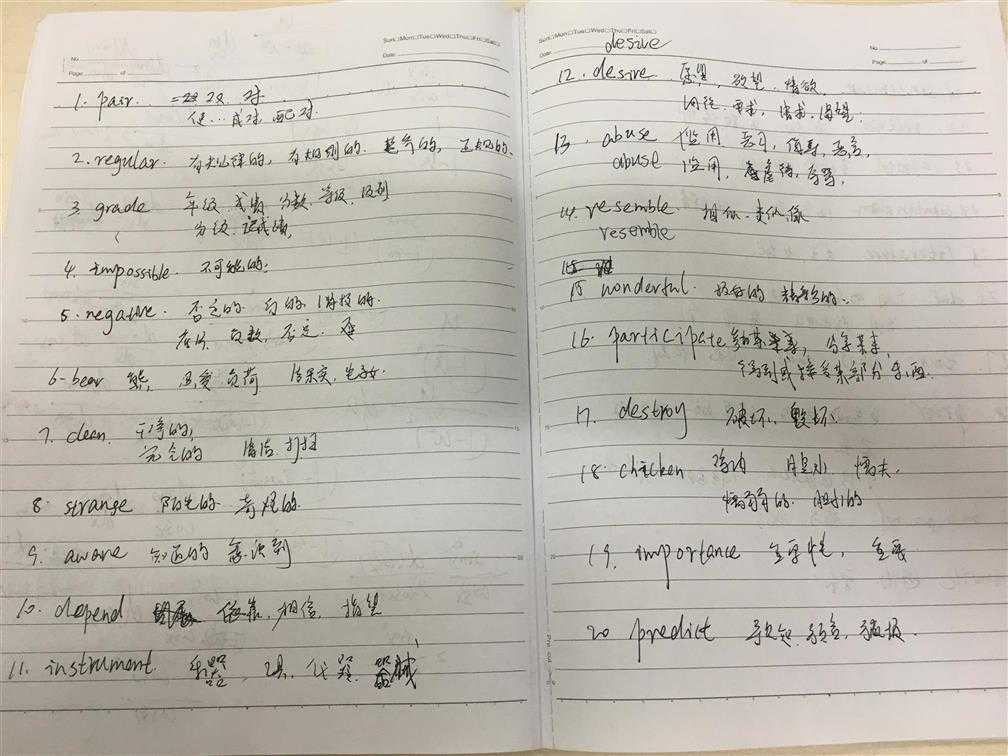 Sun Mon Tue Wed Thu Fri Sat
No
Date
Page of
1. pair. 双 对
使…成对 配对
2. regular. 有规律的, 有规则的. 正规的.
3. grade 年级. 成绩. 分数. 等级. 级别
分级. 记成绩.
4. impossible. 不可能的.
5. negative. 否定的. 负的. 消极的.
底片. 负数, 否定.
6. bear 熊, 忍受. 负荷 结果实, 生子女.
7. clean. 干净的,
完全的 清洁. 打扫
8 strange 陌生的. 奇怪的.
9. aware 知道的 意识到
10. depend 依靠, 相信, 指望
11. instrument. 乐器, 器械
Sun Mon Tue Wed Thu Fri Sat
No
Date
Page of
desire
12. desire. 愿望, 欲望. 情欲.
要求, 请求. 渴望.
13. abuse 滥用 恶习, 侮辱, 恶言,
abuse 滥用, 虐待, 辱骂,
14. resemble. 相似. 类似 像
resemble
15 wonderful. 极好的 精彩的.
16. participate 参加某事, 分享某事,
得到或接受某部分东西
17. destroy 破坏. 毁坏.
18. chicken 鸡肉 胆小 懦夫.
懦弱的. 胆小的
19. importance 重要性, 重要
20 predict 预知, 预言, 预报.